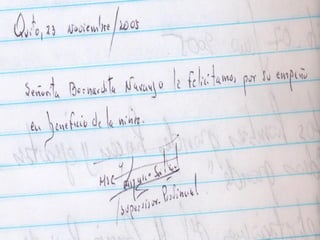 Quito, 23 Noviembre/2005
Señorita Bernardita Naranjo le felicitamos por su empeño
en beneficio de la niñez.
MSC
Supervisor Provincial